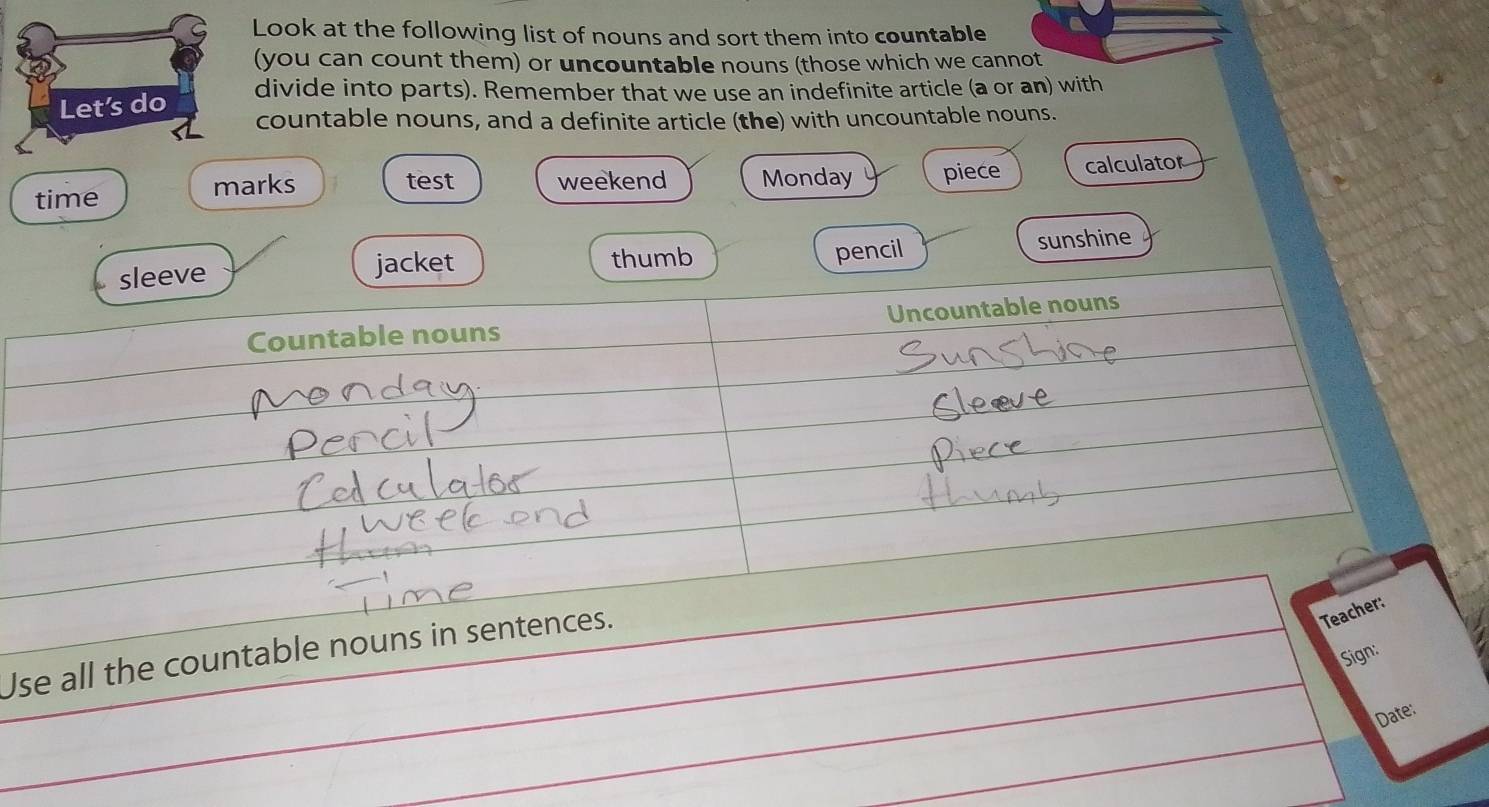 Look at the following list of nouns and sort them into countable
(you can count them) or uncountable nouns (those which we cannot
divide into parts). Remember that we use an indefinite article (a or an) with
countable nouns, and a definite article (the) with uncountable nouns.
Let's do
time marks test weekend Monday piece calculator
sleeve jacket thumb pencil sunshine
Countable nouns Uncountable nouns
Monday. Sunshine
Pencil Sleeve
Calculator Piece
weekend thumb
thum
Time
Use all the countable nouns in sentences.
Teacher:
Sign:
Date: